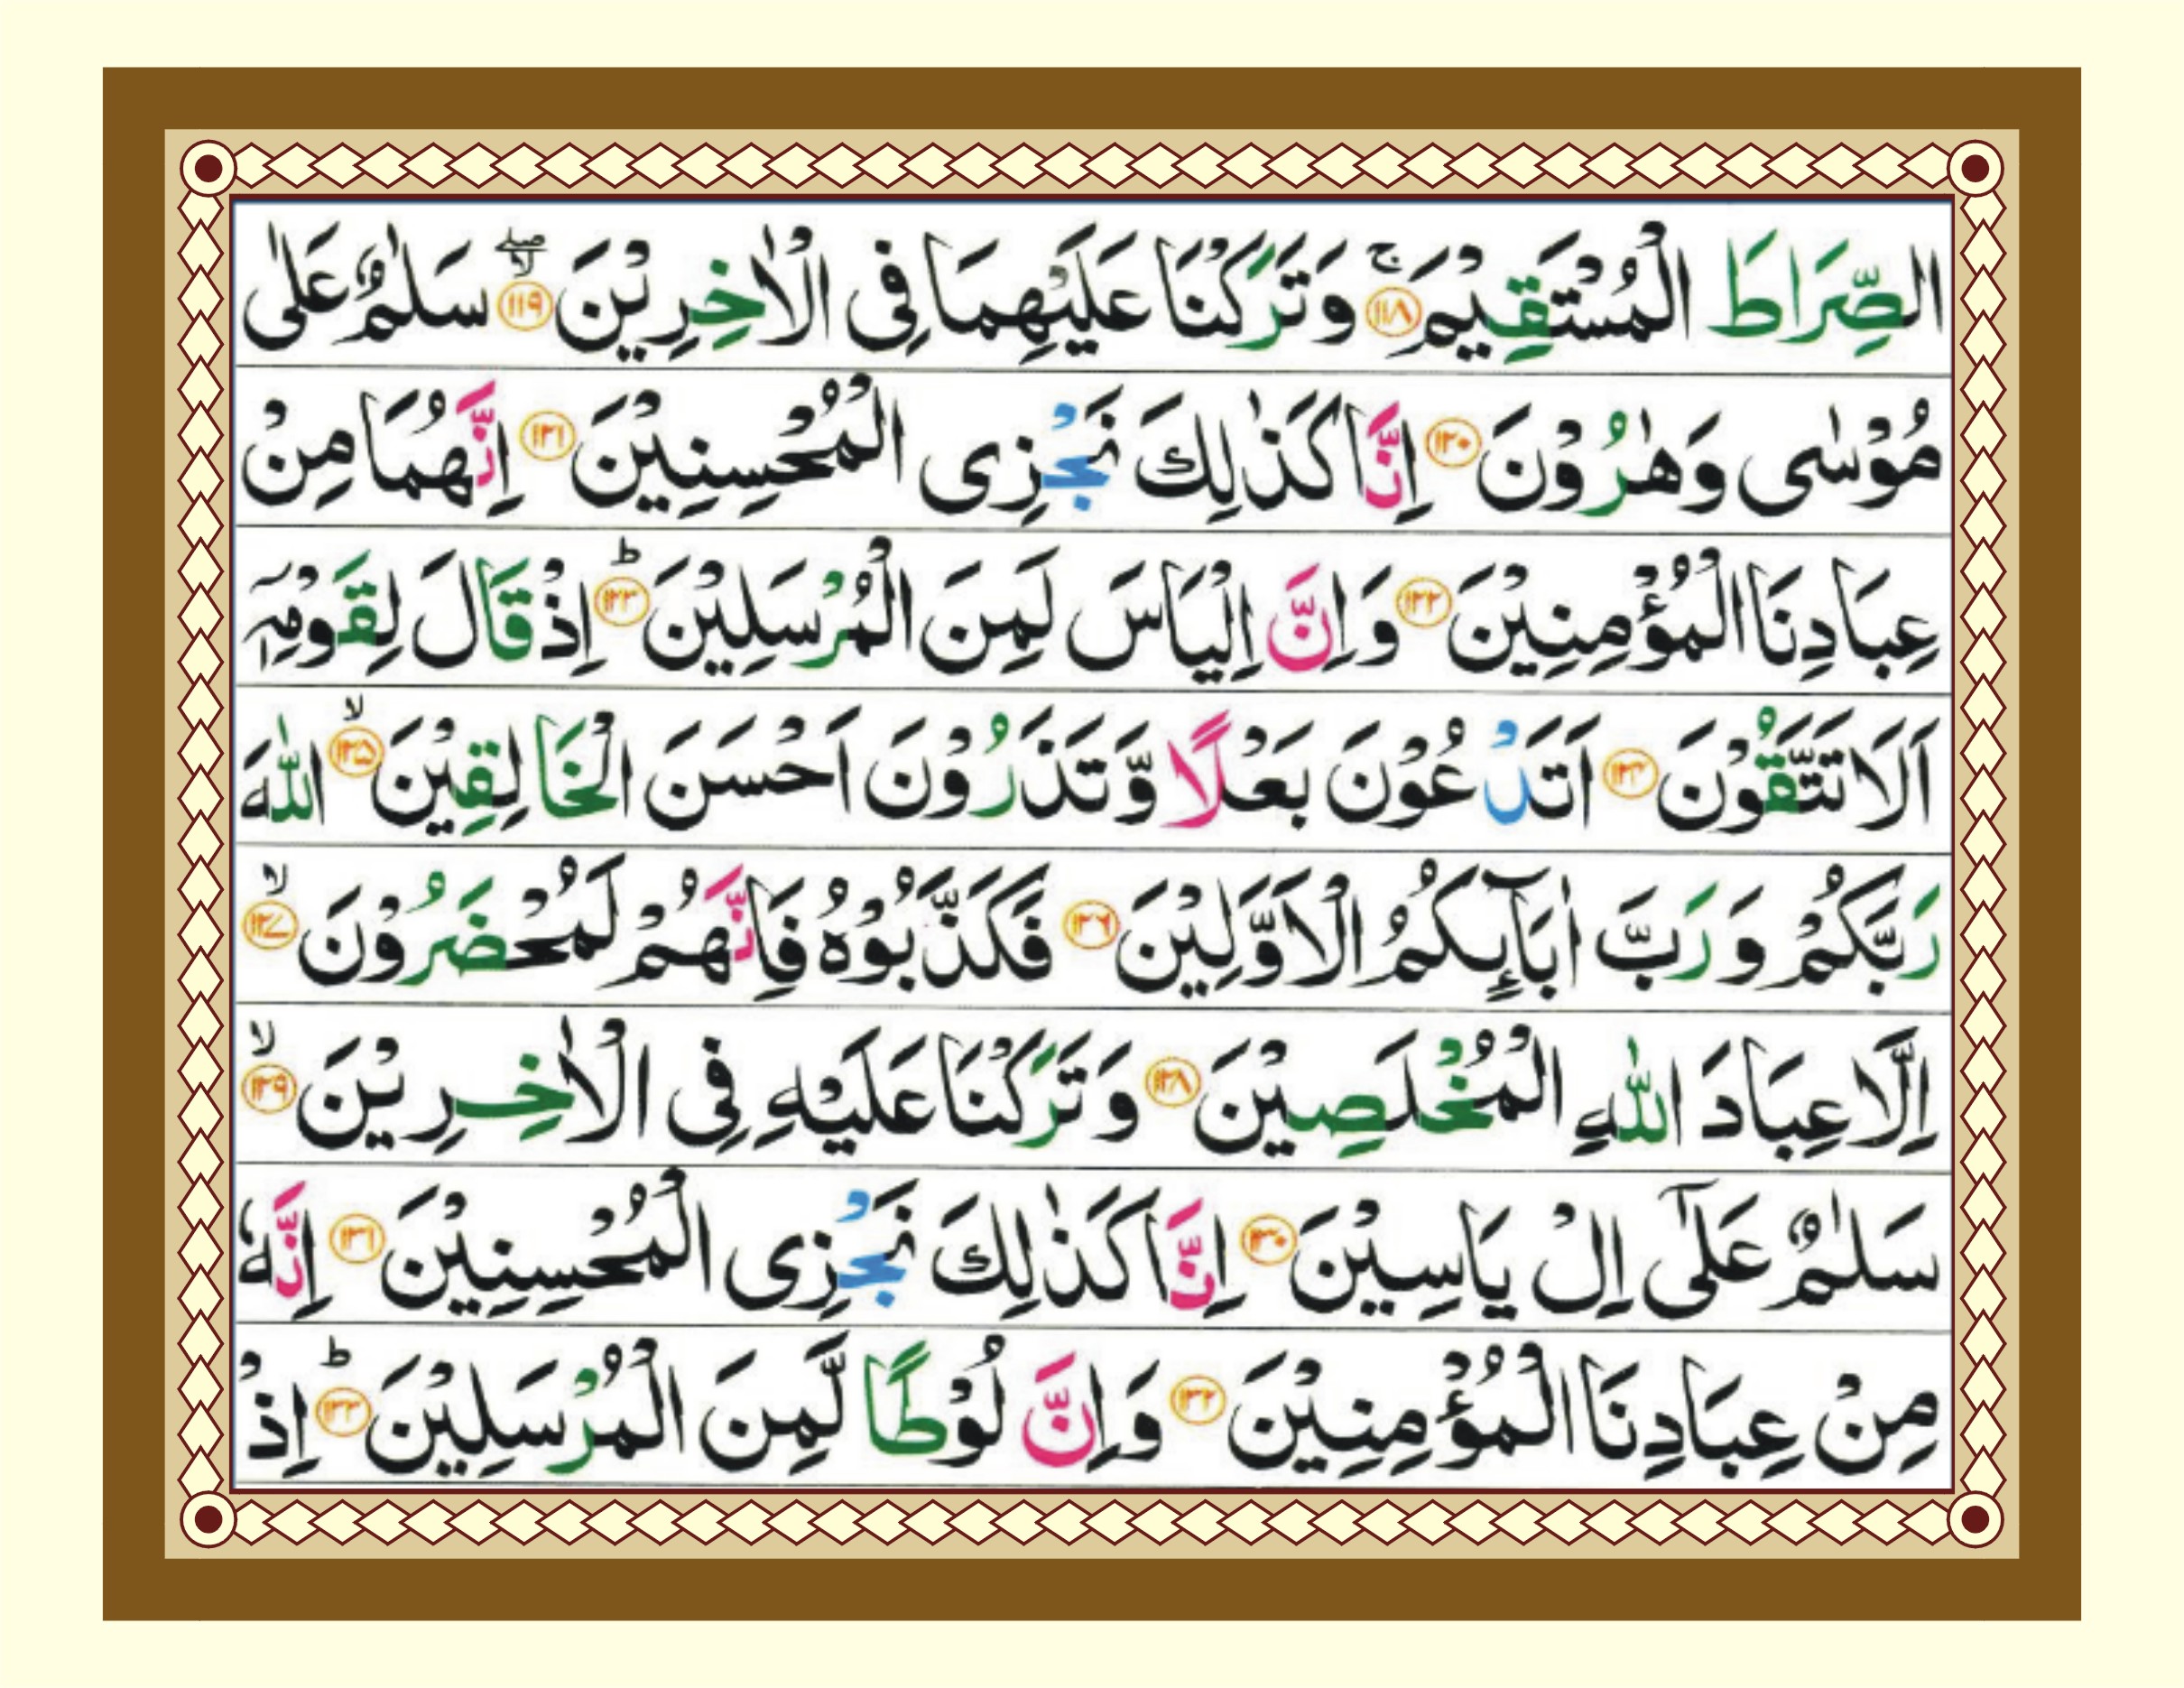 الصِّرَاطَ الْمُسْتَقِيْمَ ۚ﴿۱۱۸﴾ وَتَرَكْنَا عَلَيْهِمَا فِى الْاٰخِرِيْنَ ۙ﴿۱۱۹﴾ سَلٰمٌ عَلٰى
مُوْسٰى وَهٰرُوْنَ ﴿۱۲۰﴾ اِنَّا كَذٰلِكَ نَجْزِى الْمُحْسِنِيْنَ ﴿۱۲۱﴾ اِنَّهُمَا مِنْ
عِبَادِنَا الْمُؤْمِنِيْنَ ﴿۱۲۲﴾ وَاِنَّ اِلْيَاسَ لَمِنَ الْمُرْسَلِيْنَ ؕ﴿۱۲۳﴾ اِذْ قَالَ لِقَوْمِهٖۤ
اَلَا تَتَّقُوْنَ ﴿۱۲۴﴾ اَتَدْعُوْنَ بَعْلًا وَّتَذَرُوْنَ اَحْسَنَ الْخَالِقِيْنَ ۙ﴿۱۲۵﴾ اللّٰهَ
رَبَّكُمْ وَرَبَّ اٰبَآئِكُمُ الْاَوَّلِيْنَ ﴿۱۲۶﴾ فَكَذَّبُوْهُ فَاِنَّهُمْ لَمُحْضَرُوْنَ ۙ﴿۱۲۷﴾
اِلَّا عِبَادَ اللّٰهِ الْمُخْلَصِيْنَ ﴿۱۲۸﴾ وَتَرَكْنَا عَلَيْهِ فِى الْاٰخِرِيْنَ ۙ﴿۱۲۹﴾
سَلٰمٌ عَلٰٓى اِلْ يَاسِيْنَ ﴿۱۳۰﴾ اِنَّا كَذٰلِكَ نَجْزِى الْمُحْسِنِيْنَ ﴿۱۳۱﴾ اِنَّهٗ
مِنْ عِبَادِنَا الْمُؤْمِنِيْنَ ﴿۱۳۲﴾ وَاِنَّ لُوْطًا لَّمِنَ الْمُرْسَلِيْنَ ؕ﴿۱۳۳﴾ اِذْ